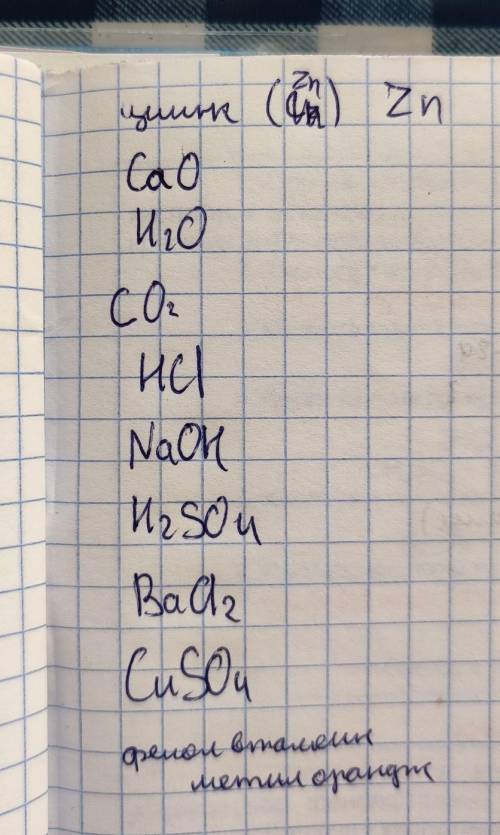 цинк (Zn) Zn
CaO
H₂O
CO₂
HCl
NaOH
H₂SO₄
BaCl₂
CuSO₄
фенолвталеин
метилорандж